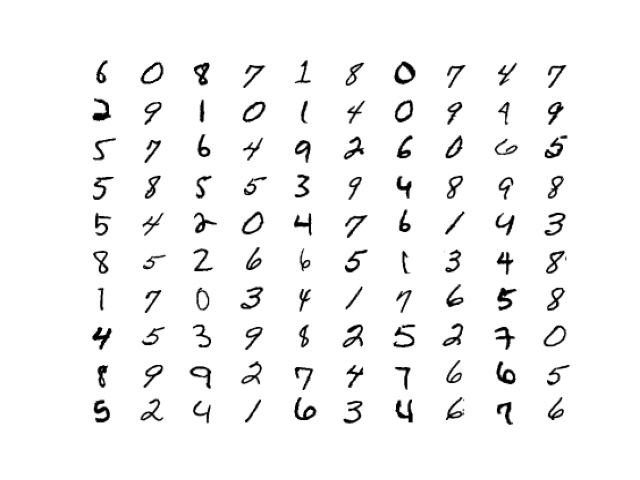 6 0 8 7 1 8 0 7 4 7
2 9 1 0 1 4 0 9 9 9
5 7 6 4 9 2 6 0 6 5
5 8 5 5 3 9 4 8 9 8
5 4 2 0 4 7 6 1 4 3
8 5 2 6 6 5 1 3 4 8
1 7 0 3 4 1 7 6 5 8
4 5 3 9 8 2 5 2 7 0
8 9 9 2 7 4 7 6 6 5
5 2 4 1 6 3 4 6 7 6